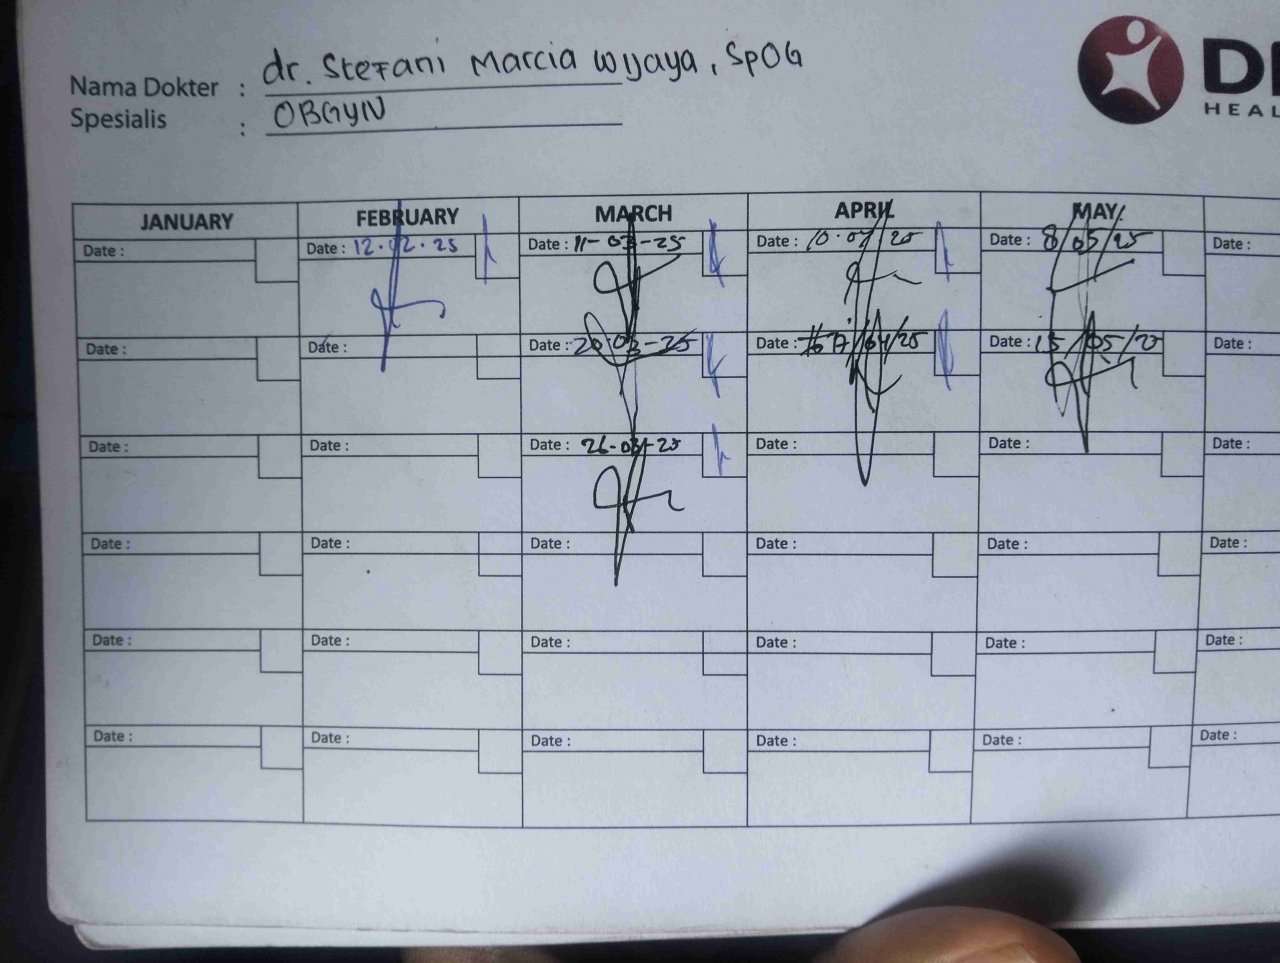 dr. Stefani Marcia Wijaya, SpOG
Nama Dokter :
Spesialis : OBGYN
HEAL
JANUARY FEBRUARY MARCH APRIL MAY
Date : Date : 12.02.25 Date : 11-03-25 Date : 10.04/25 Date : 8/05/25 Date :
Date : Date : Date : 20-03-25 Date : /04/25 Date : 15/05/25 Date :
Date : Date : Date : 26-03-25 Date : Date : Date :
Date : Date : Date : Date : Date : Date :
Date : Date : Date : Date : Date : Date :
Date : Date : Date : Date : Date : Date :